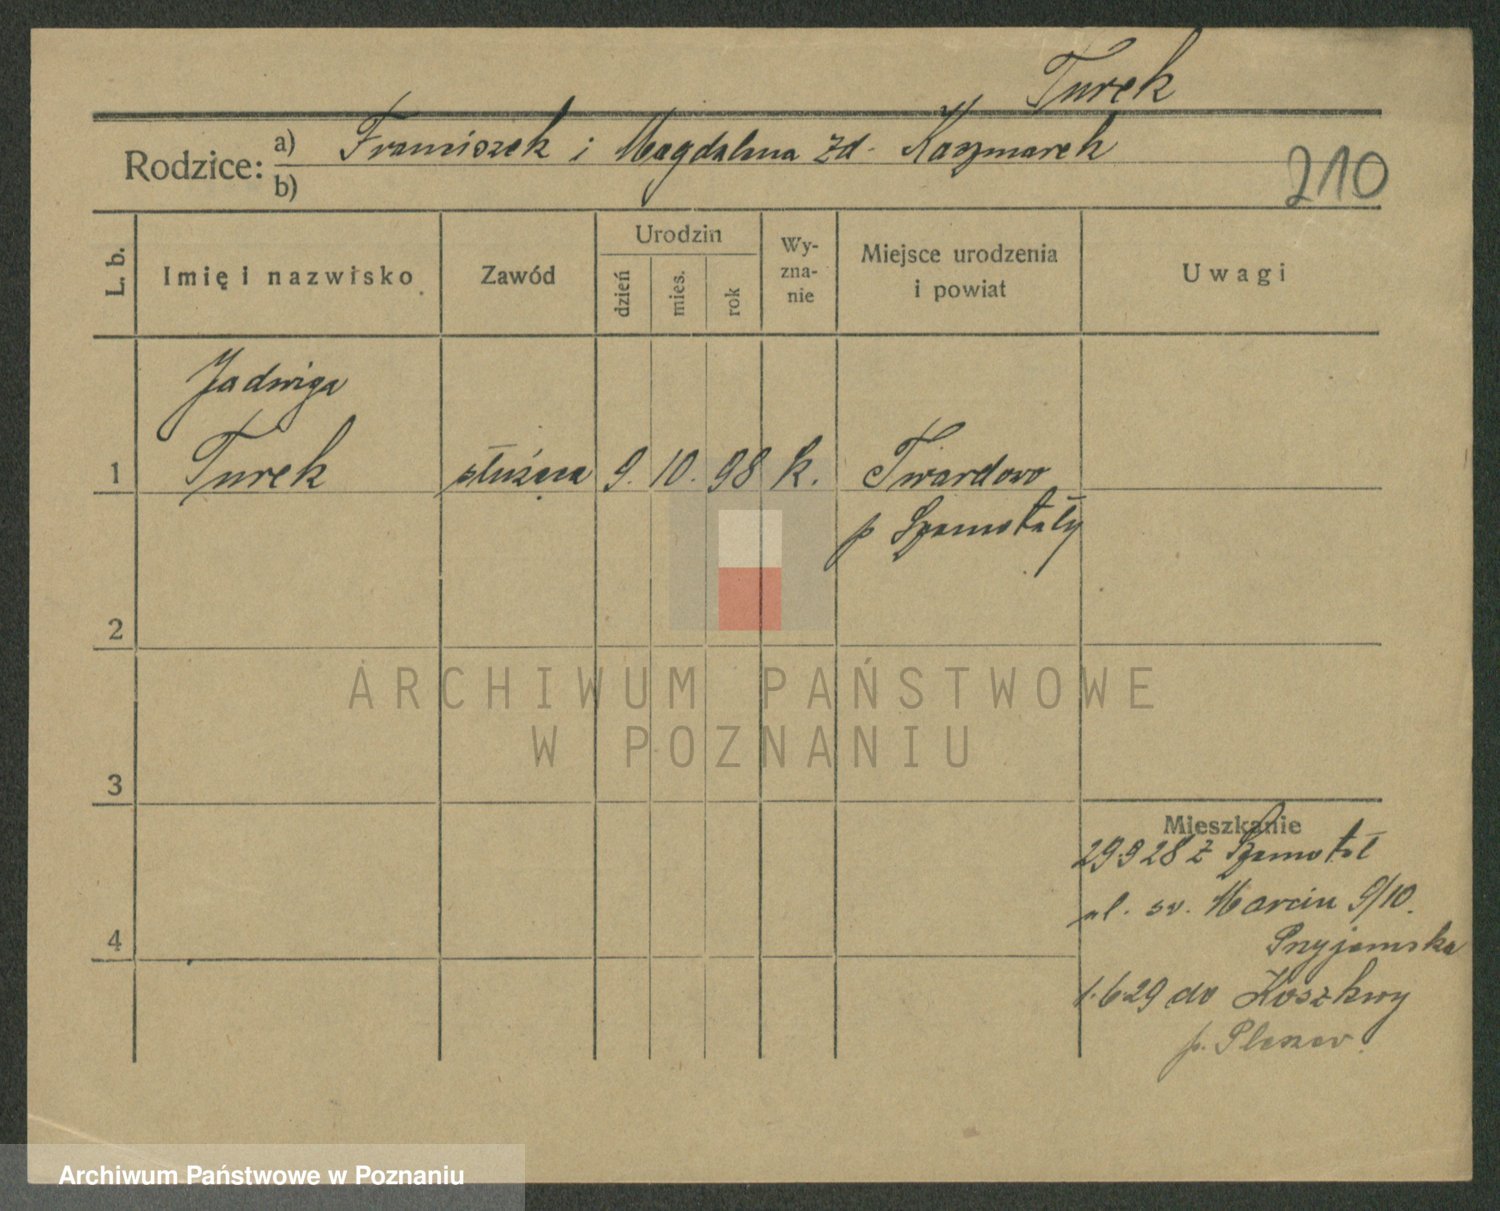 Turek
Rodzice: a) Franciszek i Magdalena zd. Kaczmarek
b)
210
L. b.
Imię i nazwisko
Zawód
Urodzin
dzień
mies.
rok
Wy-
zna-
nie
Miejsce urodzenia
i powiat
Uwagi
Jadwiga
1 Turek służąca 9. 10. 98 k. Twardowo
p Szamotuły
2
3
4
Mieszkanie
29.9 28 z Szamotuł
ul. św. Marcin 9/10.
Przyjemska
1.6 29 do Koszkwy
p. Pleszew.
ARCHIWUM PAŃSTWOWE
W POZNANIU
Archiwum Państwowe w Poznaniu